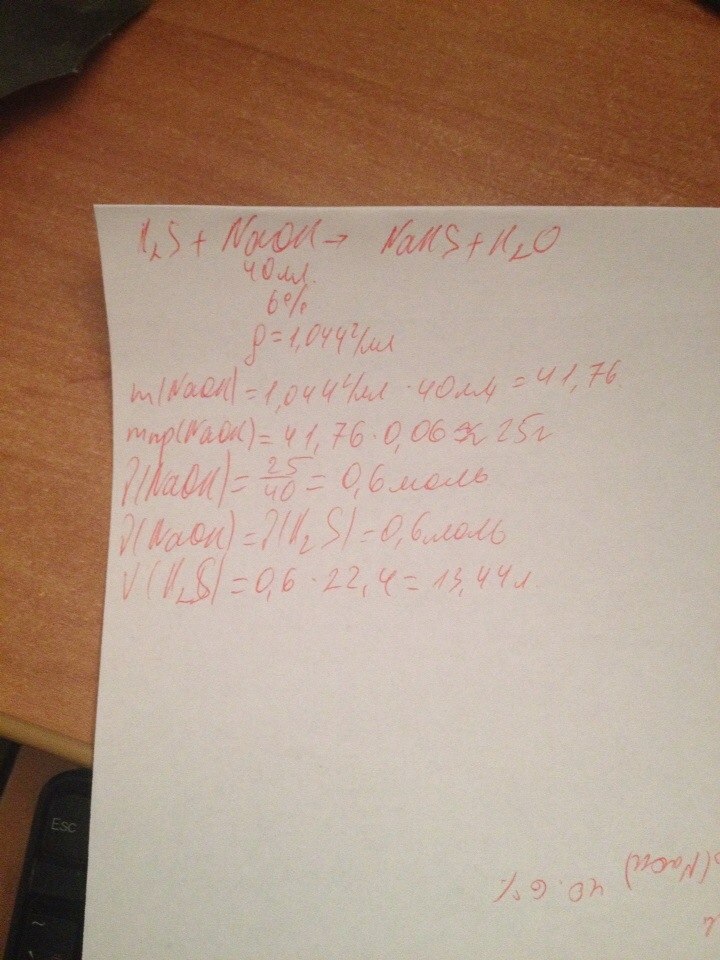 H₂S + NaOH → NaHS + H₂O
40 мл.
6%
ρ = 1,044 г/мл
m(NaOH) = 1,044 г/мл · 40 мл = 41,76
mпр(NaOH) = 41,76 · 0,06 ≈ 25г
ν(NaOH) = 25/40 = 0,6 моль
ν(NaOH) = ν(H₂S) = 0,6 моль
V(H₂S) = 0,6 · 22,4 = 13,44 л
Esc
~
(NaOH) 40 · 6%